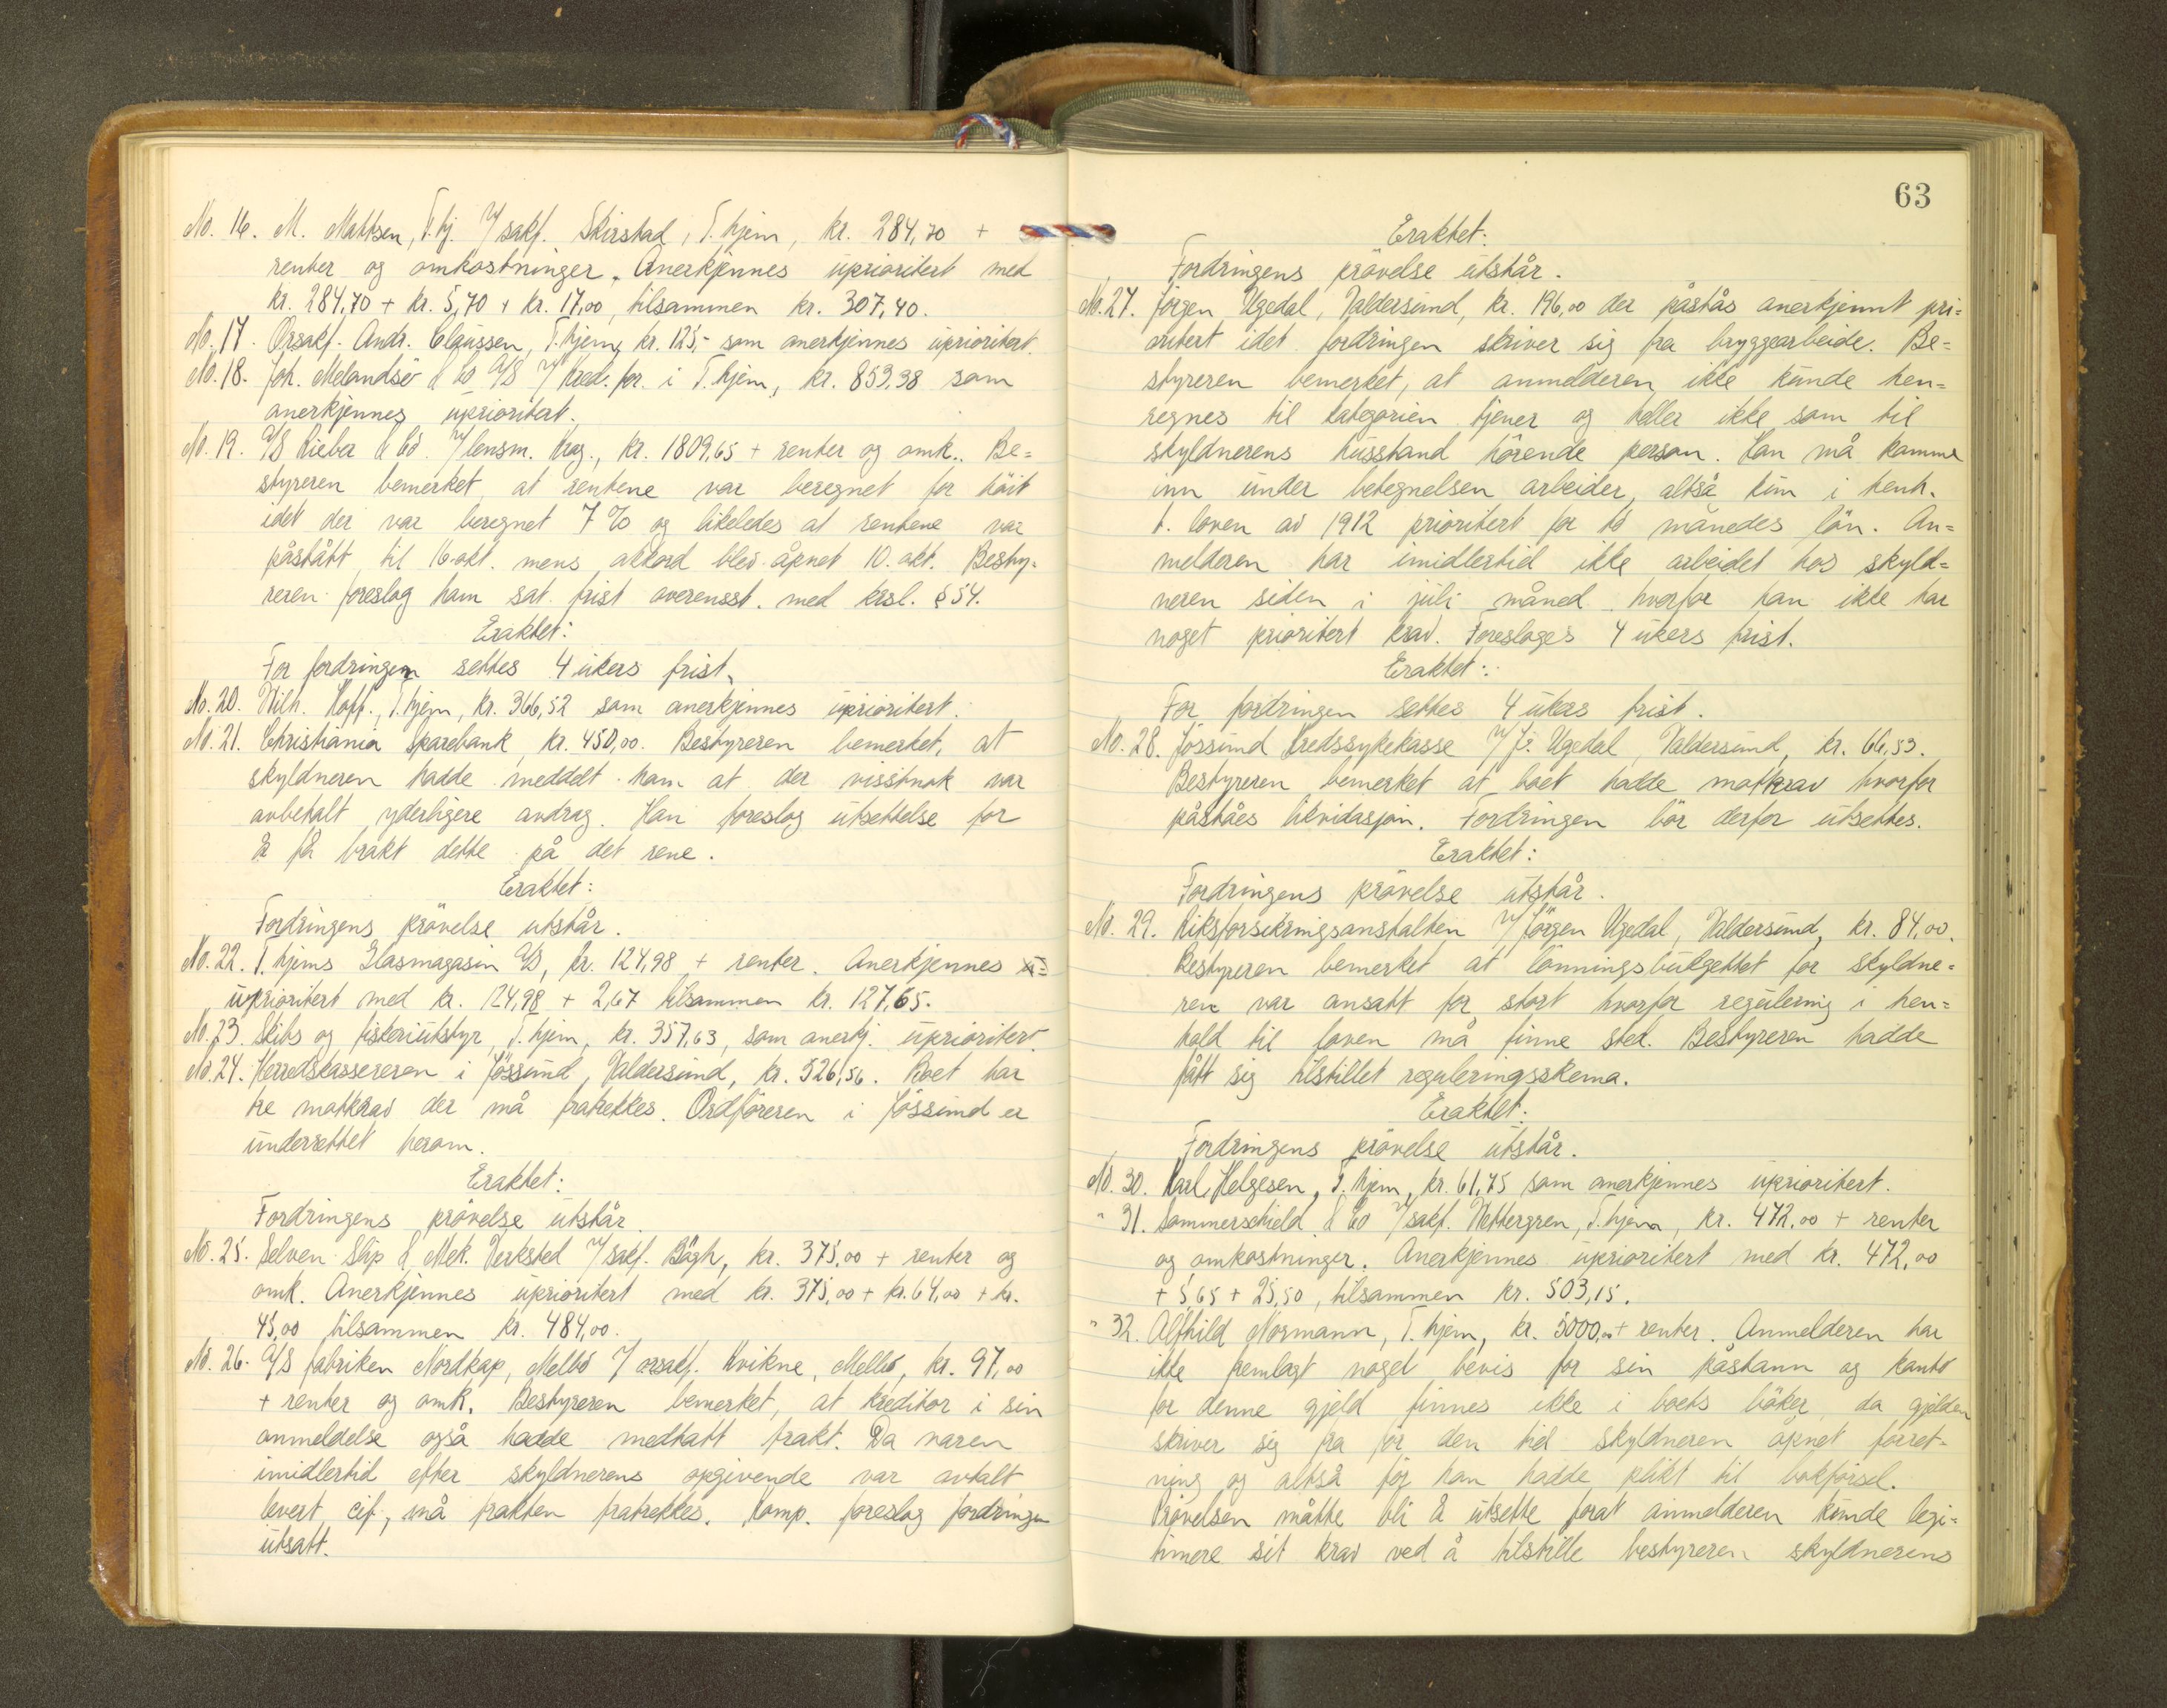 No. 16. M. Mattsen, T.hj. v/ sakf. Skirstad, T.hjem, kr. 284,70 +
renter og omkostninger. Anerkjennes uprioritert med
kr. 284,70 + kr. 5,70 + kr. 17,00, tilsammen kr. 307,40.
No. 17. Orsakf. Andr. Claussen, T.hjem, kr. 125,- som anerkjennes uprioritert.
No. 18. Joh. Melandsö & Co A/S v/ Kred.for. i T.hjem, kr. 853.98 som
anerkjennes uprioritert.
No. 19. A/S Rieber & Co. v/ lensm. Krag., kr. 1809,65 + renter og omk.. Be=
styreren bemerket at rentene var beregnet for höit
idet der var beregnet 7% og likeledes at rentene var
påstått til 16.okt. mens akkord blev åpnet 10. okt. Besty-
reren foreslog ham sat frist overensst. med krsl. § 54.
Eraktet:
For fordringen settes 4 ukers frist.
No. 20. Vilh. Hoff., T.hjem, kr. 366,52 som anerkjennes uprioritert.
No. 21. Christiania Sparebank, kr. 450,00. Bestyreren bemerket, at
skyldneren hadde meddelt ham at der visstnok var
avbetalt yderligere avdrag. Han foreslog utsettelse for
å få brakt dette på det rene.
Eraktet:
Fordringens prövelse utstår.
No. 22. T.hjems Glasmagasin A/S, kr. 124,98 + renter. Anerkjennes
uprioritert med kr. 124,98 + 2,67 tilsammen kr. 127,65.
No. 23. Skibs og fiskeriutstyr, T.hjem, kr. 357,63, som anerkj. uprioritert
No. 24. Herredskassereren i Jössund, Valdersund, kr. 526,56. Boet har
tre motkrav der må fratrekkes. Ordföreren i Jössund er
underrettet herom.
Eraktet:
Fordringens prövelse utstår
No. 25. Selven Slip & Mek. Verksted v/ sakf. Bögh, kr. 375,00 + renter og
omk. Anerkjennes uprioritert med kr. 375,00 + kr. 64,00 + kr.
45,00 tilsammen kr. 484,00.
No. 26. A/S fabriken Nordkap, Melbö v/ orsakf. Kvikne, Melbö, kr. 97,00
+ renter og omk. Bestyreren bemerket, at kreditor i sin
anmeldelse også hadde medtatt frakt. Da varen
imidlertid efter skyldnerens opgivende var avtalt
levert cif, må frakten fratrekkes. Komp. foreslog fordringen
utsatt.
63
Eraktet:
Fordringens prövelse utstår.
No. 27. Jörgen Ugedal, Valdersund, kr. 196,00 der påstås anerkjennt pri=
oritert idet fordringen skriver sig fra bryggearbeide. Be=
styreren bemerket, at anmelderen ikke kunde hen=
regnes til kategorien tjener og heller ikke som til
skyldnerens husstand hörende person. Han må komme
inn under betegnelsen arbeider, altså kun i henh.
t. loven av 1912 prioritert for to måneds lön. An=
melderen har imidlertid ikke arbeidet hos skyld=
neren siden i juli måned hvorfor han ikke har
noget prioritert krav. Foreslåges 4 ukers frist.
Eraktet:
For fordringen settes 4 ukers frist.
No. 28. Jössund Kredssykekasse v/ Jr. Ugedal, Valdersund, kr. 66,53.
Bestyreren bemerket at boet hadde motkrav hvorfor
påståes likvidasjon. Fordringen bör derfor utsettes.
Eraktet:
Fordringens prövelse utstår.
No. 29. Riksforsikringsanstalten v/ Jörgen Ugedal, Valdersund, kr. 84,00.
Bestyreren bemerket at lönningsbudgettet for skyldne=
ren var ansatt for stort hvorfor regulering i hen=
hold til loven må finne sted. Bestyreren hadde
fått sig tilstillet reguleringsskema.
Eraktet:
Fordringens prövelse utstår.
No. 30. Karl Helgesen, T.hjem, kr. 61,75 som anerkjennes uprioritert.
" 31. Sommerschield & Co v/ sakf. Wettergren, T.hjem, kr. 472,00 + renter
og omkostninger. Anerkjennes uprioritert med kr. 472,00
+ 5,65 + 25,50, tilsammen kr. 503,15.
" 32. Alfhild Normann, T.hjem, kr. 5000,00 + renter. Anmelderen har
ikke fremlagt noget bevis for sin påstann og konto
for denne gjeld finnes ikke i boets böker, da gjelden
skriver sig fra för den tid skyldneren åpnet forret-
ning og altså för han hadde plikt til bokförsel.
Prövelsen måtte bli å utsette forat anmelderen kunde legi=
timere sit krav ved å tilstille bestyreren skyldnerens